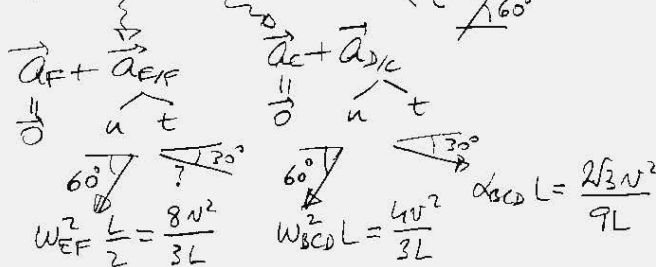 60°
a⃗_F + a⃗_E/F    a⃗_C + a⃗_D/C
0⃗  n  t    0⃗  n  t
60°  ?  30°    60°  30°
ω²_EF L/2 = 8v²/3L    ω²_BCD L = 4v²/3L    α_BCD L = 2√3v²/9L